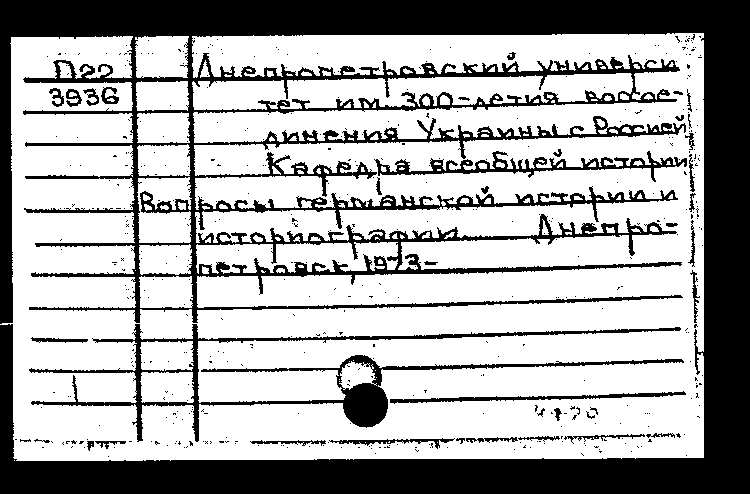 П22 Днепропетровский универси
3936 тет им. 300-летия воссое-
динения Украины с Россией
Кафедра всеобщей истории
Вопросы германской истории и
историографии. Днепро-
петровск, 1973-